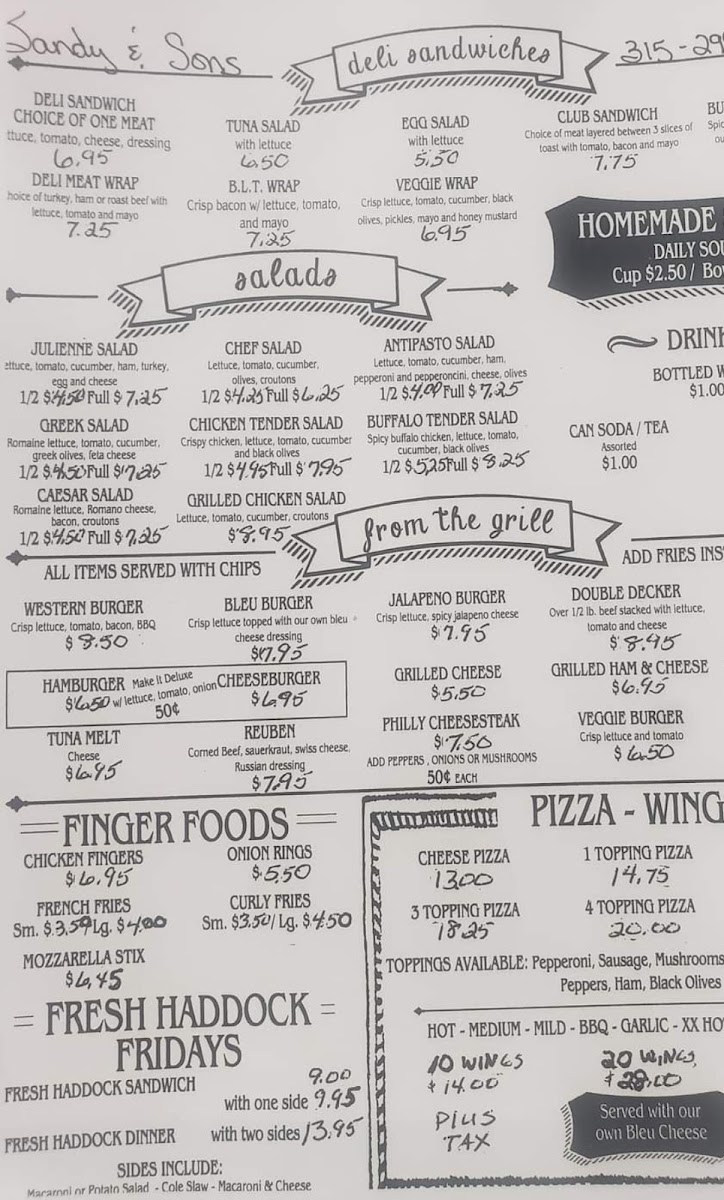 Sandy & Sons
deli sandwiches
315-29
DELI SANDWICH
CHOICE OF ONE MEAT
ttuce, tomato, cheese, dressing
6.95
TUNA SALAD
with lettuce
6.50
EGG SALAD
with lettuce
5.50
CLUB SANDWICH
Choice of meat layered between 3 slices of
toast with tomato, bacon and mayo
7.75
BU
Spic
DELI MEAT WRAP
hoice of turkey, ham or roast beef with
lettuce, tomato and mayo
7.25
B.L.T. WRAP
Crisp bacon w/ lettuce, tomato,
and mayo
7.25
VEGGIE WRAP
Crisp lettuce, tomato, cucumber, black
olives, pickles, mayo and honey mustard
6.95
HOMEMADE
DAILY SOU
Cup $2.50 / Bo
salads
JULIENNE SALAD
ettuce, tomato, cucumber, ham, turkey,
egg and cheese
1/2 $4.50 Full $7.25
CHEF SALAD
Lettuce, tomato, cucumber,
olives, croutons
1/2 $4.25 Full $6.25
ANTIPASTO SALAD
Lettuce, tomato, cucumber, ham,
pepperoni and pepperoncini, cheese, olives
1/2 $4.00 Full $7.25
DRIN
BOTTLED W
$1.00
GREEK SALAD
Romaine lettuce, tomato, cucumber,
greek olives, feta cheese
1/2 $4.50 Full $7.25
CHICKEN TENDER SALAD
Crispy chicken, lettuce, tomato, cucumber
and black olives
1/2 $4.95 Full $7.95
BUFFALO TENDER SALAD
Spicy buffalo chicken, lettuce, tomato,
cucumber, black olives
1/2 $5.25 Full $8.25
CAN SODA / TEA
Assorted
$1.00
CAESAR SALAD
Romaine lettuce, Romano cheese,
bacon, croutons
1/2 $4.50 Full $7.25
GRILLED CHICKEN SALAD
Lettuce, tomato, cucumber, croutons
$8.95
from the grill
ALL ITEMS SERVED WITH CHIPS
ADD FRIES INS
WESTERN BURGER
Crisp lettuce, tomato, bacon, BBQ
$8.50
BLEU BURGER
Crisp lettuce topped with our own bleu
cheese dressing
$7.95
JALAPENO BURGER
Crisp lettuce, spicy jalapeno cheese
$7.95
DOUBLE DECKER
Over 1/2 lb. beef stacked with lettuce,
tomato and cheese
$8.95
HAMBURGER
$6.50
Make It Deluxe
w/ lettuce, tomato, onion
50¢
CHEESEBURGER
$6.95
GRILLED CHEESE
$5.50
GRILLED HAM & CHEESE
$6.95
TUNA MELT
Cheese
$6.95
REUBEN
Corned Beef, sauerkraut, swiss cheese,
Russian dressing
$7.95
PHILLY CHEESESTEAK
$7.50
ADD PEPPERS, ONIONS OR MUSHROOMS
50¢ EACH
VEGGIE BURGER
Crisp lettuce and tomato
$6.50
FINGER FOODS
CHICKEN FINGERS
$6.95
ONION RINGS
$5.50
FRENCH FRIES
Sm. $3.59 Lg. $4.00
CURLY FRIES
Sm. $3.50/ Lg. $4.50
MOZZARELLA STIX
$6.45
FRESH HADDOCK
FRIDAYS
FRESH HADDOCK SANDWICH
9.00
with one side 9.95
FRESH HADDOCK DINNER
with two sides 13.95
SIDES INCLUDE:
Macaroni or Potato Salad - Cole Slaw - Macaroni & Cheese
PIZZA - WING
CHEESE PIZZA
13.00
1 TOPPING PIZZA
14.75
3 TOPPING PIZZA
18.25
4 TOPPING PIZZA
20.00
TOPPINGS AVAILABLE: Pepperoni, Sausage, Mushrooms
Peppers, Ham, Black Olives
HOT - MEDIUM - MILD - BBQ - GARLIC - XX HO
10 WINGS
$14.00
20 WINGS
$28.00
PLUS
TAX
Served with our
own Bleu Cheese